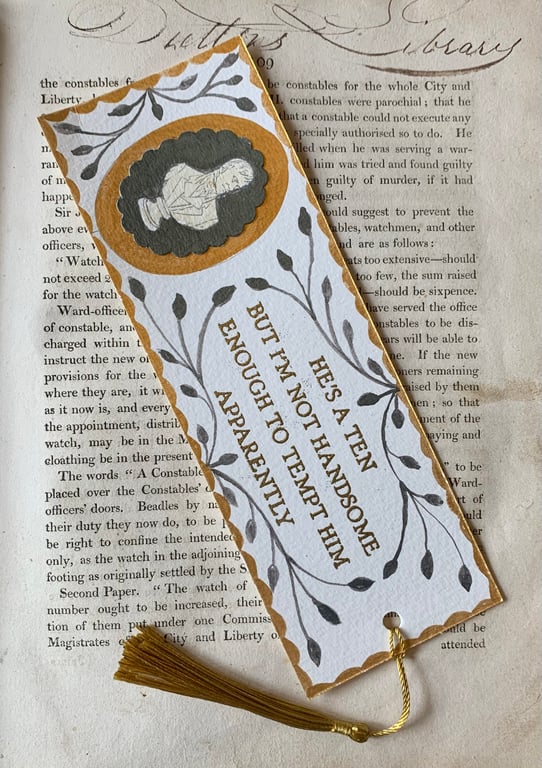 Duttons Library
99
the constables f be constables for the whole City and
Liberty H. constables were parochial; that he
that a constable could not execute any
specially authorised so to do. He
lled when he was serving a war-
ran d him was tried and found guilty
of m guilty of murder, if it had
happe nged.
Sir J ould suggest to prevent the
above ev ables, watchmen, and other
officers, w nd are as follows:
"Watch ats too extensive—should
not exceed 2 too few, the sum raised
for the watch —should be sixpence.
Ward-officer have served the office
of constable, an nstables to be dis-
charged within t ars will be able to
instruct the new o ne. If the new
provisions for the oners remaining
where they are, it wi aised by them
as it now is, and every en; so that
the appointment, distrib ment of the
watch, may be in the M aying and
cloathing be in the present
The words "A Constable " to be
placed over the Constables' Ward-
officers' doors. Beadles by na rt of
their duty they now do, to be p uld
be right to confine the intende er
only, as the watch in the adjoining
footing as originally settled by the S
Second Paper. "The watch of
number ought to be increased, their
tion of them put under one Commiss uld be
Magistrates of City and Liberty o attended
HE'S A TEN
BUT I'M NOT HANDSOME
ENOUGH TO TEMPT HIM
APPARENTLY